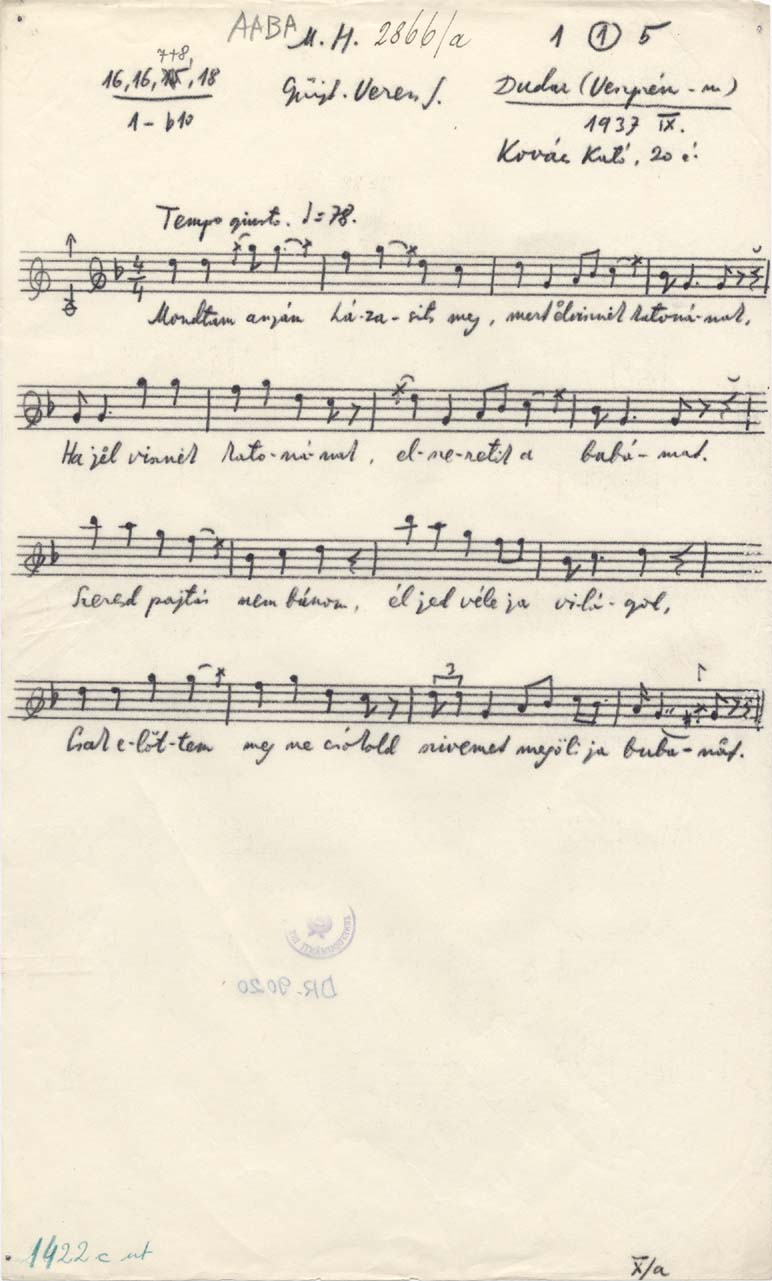 AABA M. H. 2866/a 1 1 5
7+8,
16, 16, 15, 18
1 - b10
Gyüjt. Veress S.
Dudar (Veszprém - m)
1937 IX.
Kovács Kató, 20 é.
Tempo giusto. ♩=78.
4/4
Mondtam anyám há-za-sits meg, mert elvisznek katoná-nak,
Ha jël visznek kato-ná-nak, el-sze-retik a babá-mat.
Szeresd pajtás nem bánom, él jed véle ja vi-lá-got,
3
Csak e-löt-tem meg ne csókold szivemet megöli ja buba-nåt.
DR. 9020
1422 c ut
X/a